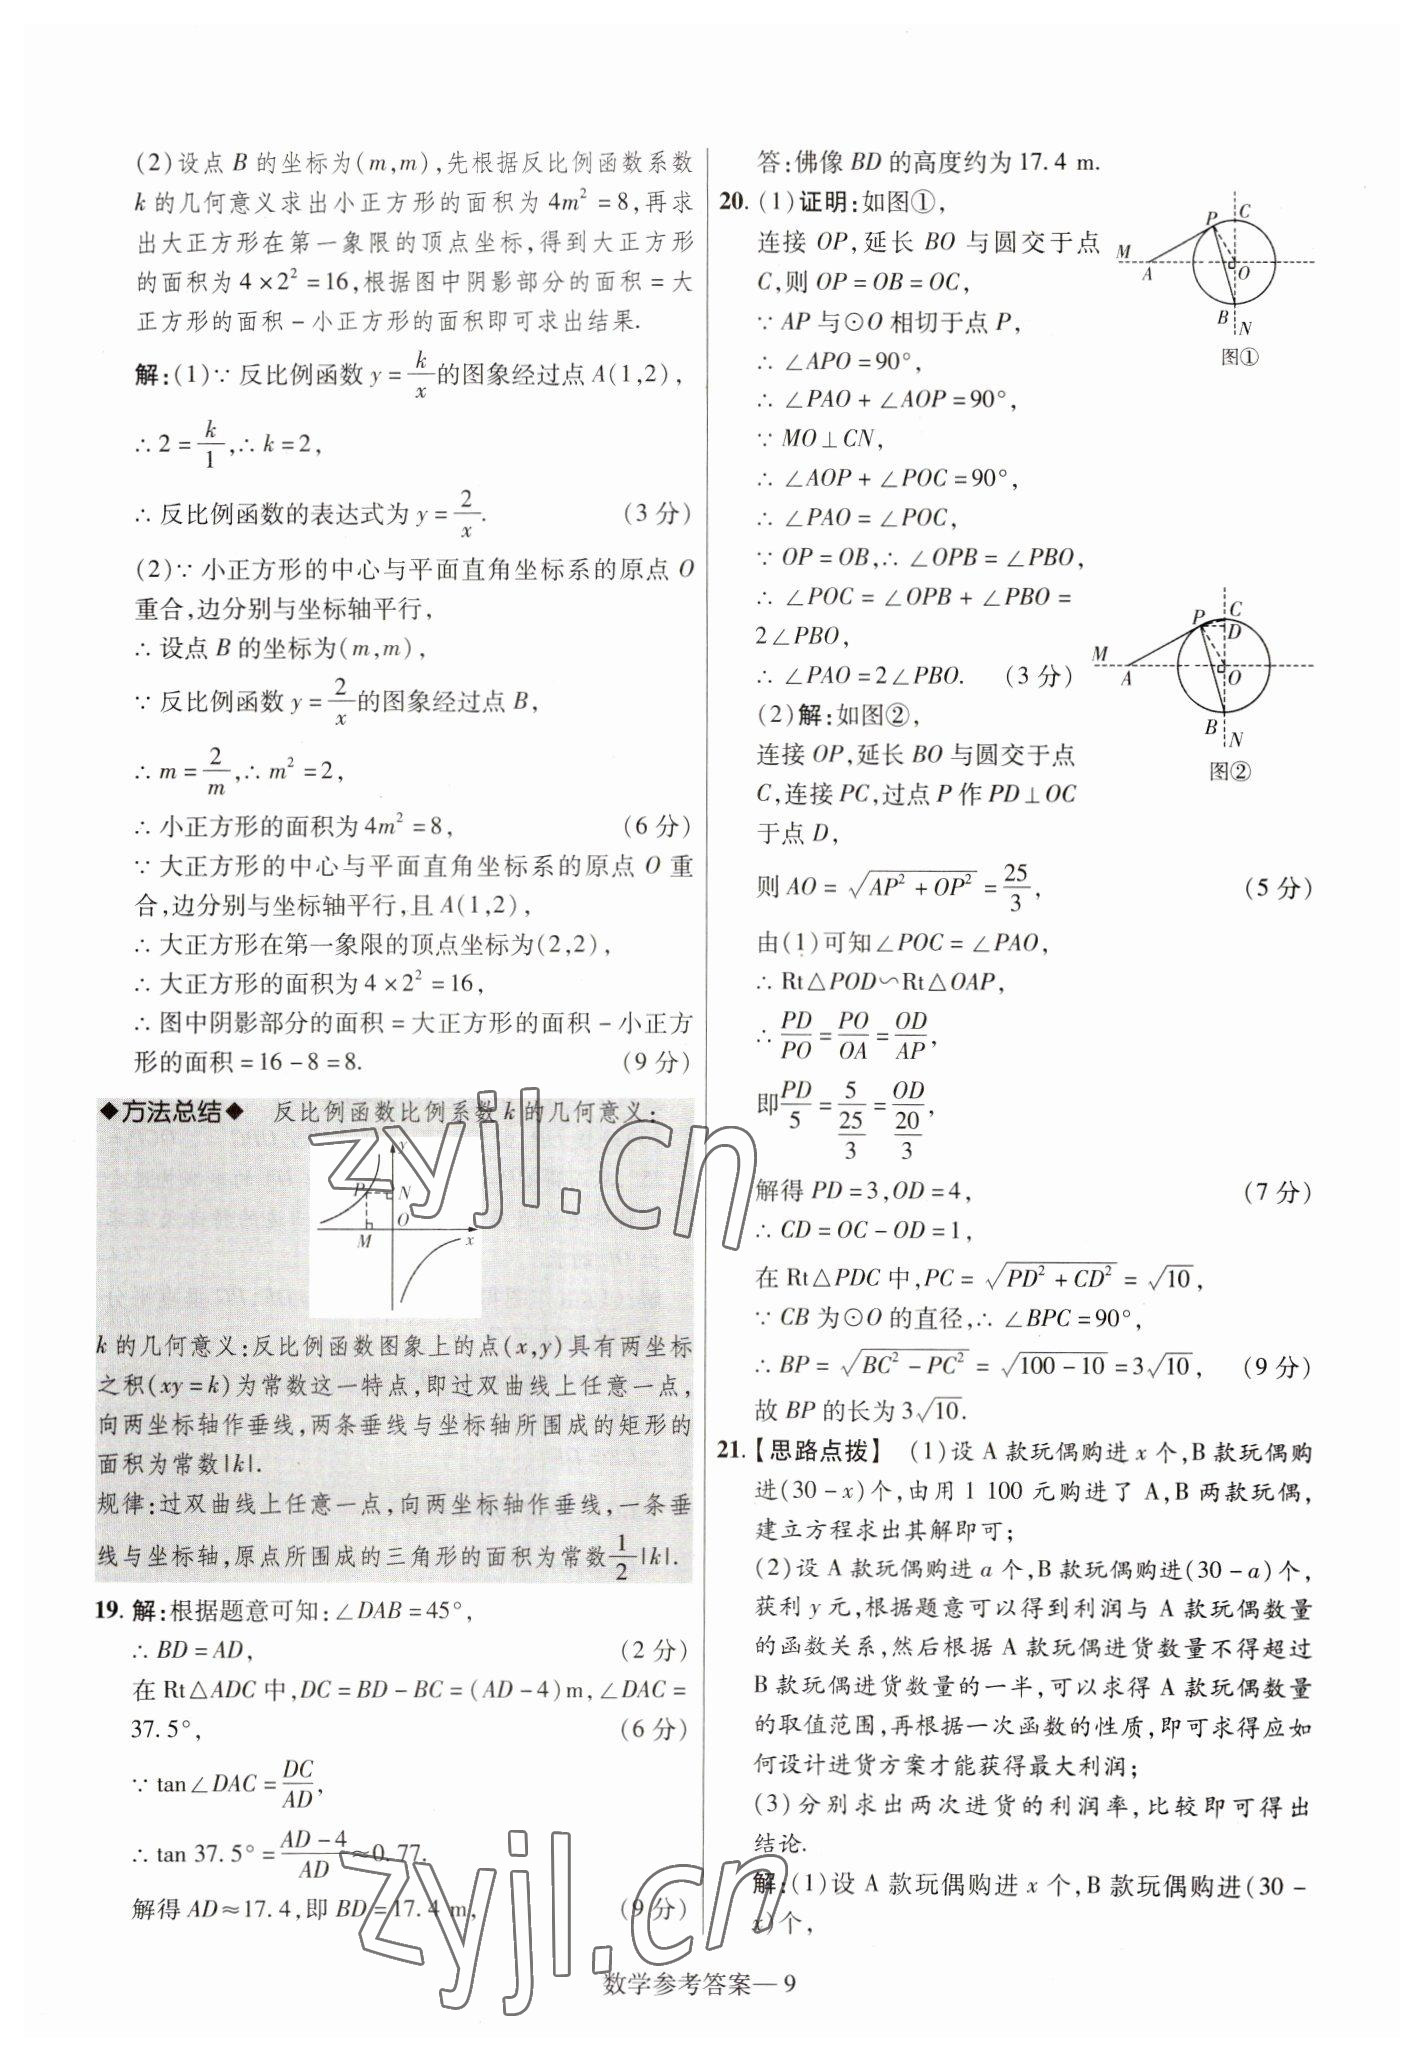 (2)设点 B 的坐标为(m,m),先根据反比例函数系数
k 的几何意义求出小正方形的面积为 4m² = 8,再求
出大正方形在第一象限的顶点坐标,得到大正方形
的面积为 4 × 2² = 16,根据图中阴影部分的面积 = 大
正方形的面积 - 小正方形的面积即可求出结果.
解:(1)∵ 反比例函数 y = k/x 的图象经过点 A(1,2),
∴ 2 = k/1,∴ k = 2,
∴ 反比例函数的表达式为 y = 2/x. (3 分)
(2)∵ 小正方形的中心与平面直角坐标系的原点 O
重合,边分别与坐标轴平行,
∴ 设点 B 的坐标为(m,m),
∵ 反比例函数 y = 2/x 的图象经过点 B,
∴ m = 2/m,∴ m² = 2,
∴ 小正方形的面积为 4m² = 8, (6 分)
∵ 大正方形的中心与平面直角坐标系的原点 O 重
合,边分别与坐标轴平行,且 A(1,2),
∴ 大正方形在第一象限的顶点坐标为(2,2),
∴ 大正方形的面积为 4 × 2² = 16,
∴ 图中阴影部分的面积 = 大正方形的面积 - 小正方
形的面积 = 16 - 8 = 8. (9 分)
◆方法总结◆ 反比例函数比例系数 k 的几何意义:
y
P
N
O
M
x
k 的几何意义:反比例函数图象上的点(x,y)具有两坐标
之积(xy = k)为常数这一特点,即过双曲线上任意一点,
向两坐标轴作垂线,两条垂线与坐标轴所围成的矩形的
面积为常数|k|.
规律:过双曲线上任意一点,向两坐标轴作垂线,一条垂
线与坐标轴,原点所围成的三角形的面积为常数 1/2 |k|.
19. 解:根据题意可知:∠DAB = 45°,
∴ BD = AD, (2 分)
在 Rt△ADC 中,DC = BD - BC = (AD - 4) m,∠DAC =
37.5°, (6 分)
∵ tan∠DAC = DC/AD,
∴ tan 37.5° = (AD - 4)/AD ≈ 0.77.
解得 AD ≈ 17.4,即 BD = 17.4 m, (9 分)
答:佛像 BD 的高度约为 17.4 m.
20. (1)证明:如图①,
连接 OP,延长 BO 与圆交于点
C,则 OP = OB = OC,
∵ AP 与⊙O 相切于点 P,
∴ ∠APO = 90°,
∴ ∠PAO + ∠AOP = 90°,
∵ MO⊥CN,
∴ ∠AOP + ∠POC = 90°,
∴ ∠PAO = ∠POC,
∵ OP = OB,∴ ∠OPB = ∠PBO,
∴ ∠POC = ∠OPB + ∠PBO =
2∠PBO,
∴ ∠PAO = 2∠PBO. (3 分)
P
C
M
A
O
B
N
图①
(2)解:如图②,
连接 OP,延长 BO 与圆交于点
C,连接 PC,过点 P 作 PD⊥OC
于点 D,
P
C
D
M
A
O
B
N
图②
则 AO = √(AP² + OP²) = 25/3, (5 分)
由(1)可知∠POC = ∠PAO,
∴ Rt△POD∽Rt△OAP,
∴ PD/PO = PO/OA = OD/AP,
即 PD/5 = 5/(25/3) = OD/(20/3),
解得 PD = 3,OD = 4, (7 分)
∴ CD = OC - OD = 1,
在 Rt△PDC 中,PC = √(PD² + CD²) = √10,
∵ CB 为⊙O 的直径,∴ ∠BPC = 90°,
∴ BP = √(BC² - PC²) = √(100 - 10) = 3√10, (9 分)
故 BP 的长为 3√10.
21. 【思路点拨】 (1)设 A 款玩偶购进 x 个,B 款玩偶购
进(30 - x)个,由用 1 100 元购进了 A,B 两款玩偶,
建立方程求出其解即可;
(2)设 A 款玩偶购进 a 个,B 款玩偶购进(30 - a)个,
获利 y 元,根据题意可以得到利润与 A 款玩偶数量
的函数关系,然后根据 A 款玩偶进货数量不得超过
B 款玩偶进货数量的一半,可以求得 A 款玩偶数量
的取值范围,再根据一次函数的性质,即可求得应如
何设计进货方案才能获得最大利润;
(3)分别求出两次进货的利润率,比较即可得出
结论.
解:(1)设 A 款玩偶购进 x 个,B 款玩偶购进(30 -
x)个,
数学参考答案— 9
zyjl.cn
zyjl.cn